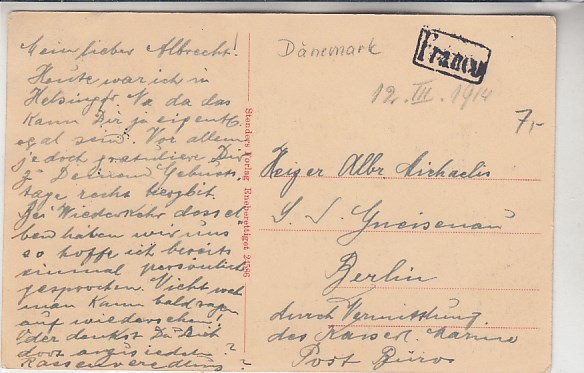 Mein lieber Albrecht!
Heute war ich in
Helsingör. Na da das
kann Dir ja eigentl.
egal sein. Vor allem
jedoch gratuliere Dir
z. Deinem Geburts
tage recht herzl.
Bei Wiederkehr dessel
ben haben wir uns
so hoffe ich bereits
einmal persönlich
gesprochen. Nicht wahr
man kann bald sagen
auf wiedersehen!
Oder denkst Du Dich
dort anzusiedeln?
Rassenveredlung?
Stenders Forlag Eneberettiget 24586
Dänemark
Franco
12. III. 1914
7,-
Heizer Albr Michaelis
S. S. Gneisenau
Berlin
durch Vermittlung
des Kaiserl. Marine
Post Büros